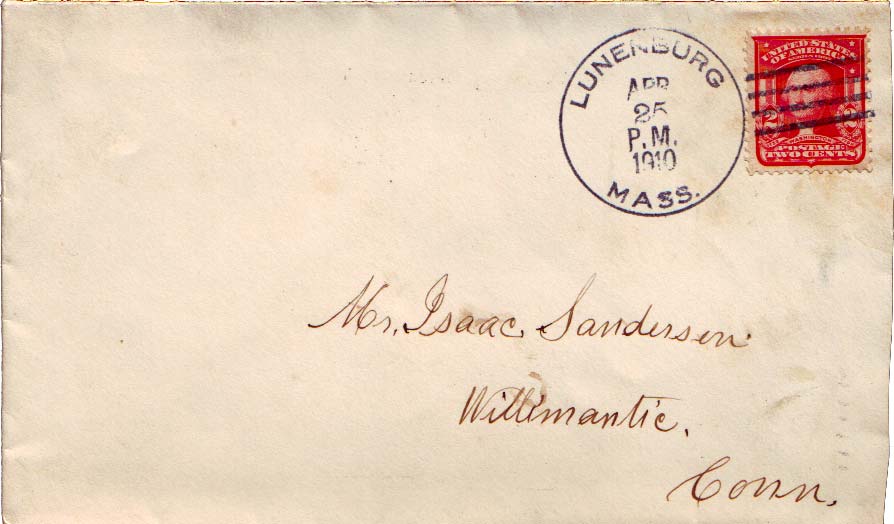 LUNENBURG
APR
25
P.M.
1910
MASS.
UNITED STATES
OF AMERICA
2 2
WASHINGTON
POSTAGE
TWO CENTS
Mr. Isaac Sanderson
Willimantic,
Conn.